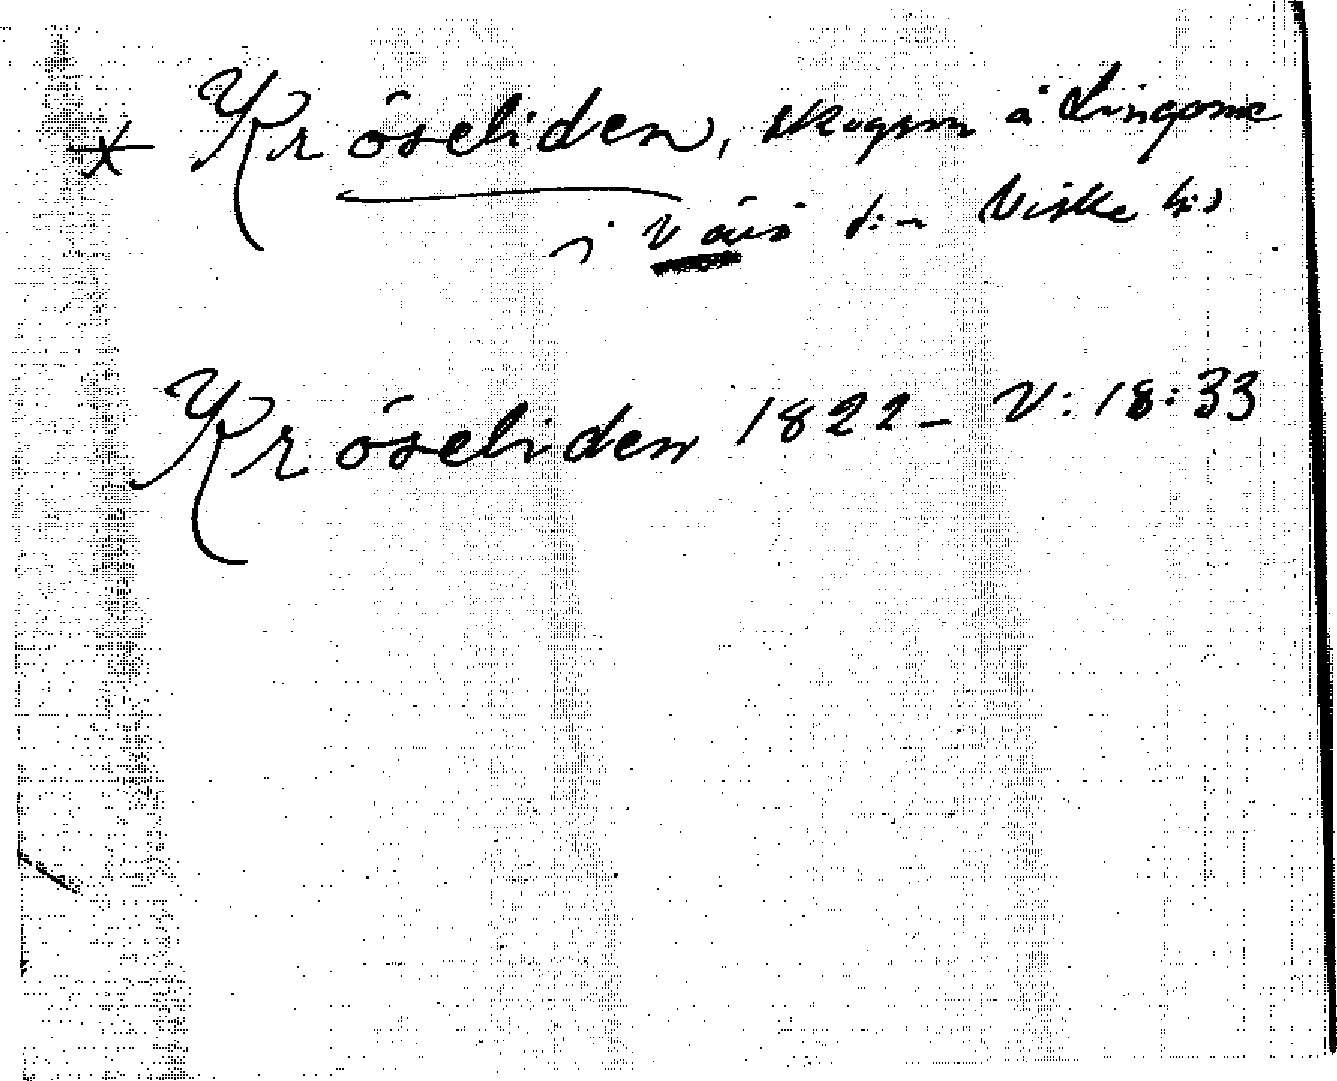 * Kröseliden, skogen å Lingome
i Väris s:n Viske hd
Kröseliden 1822 - V: 18:33